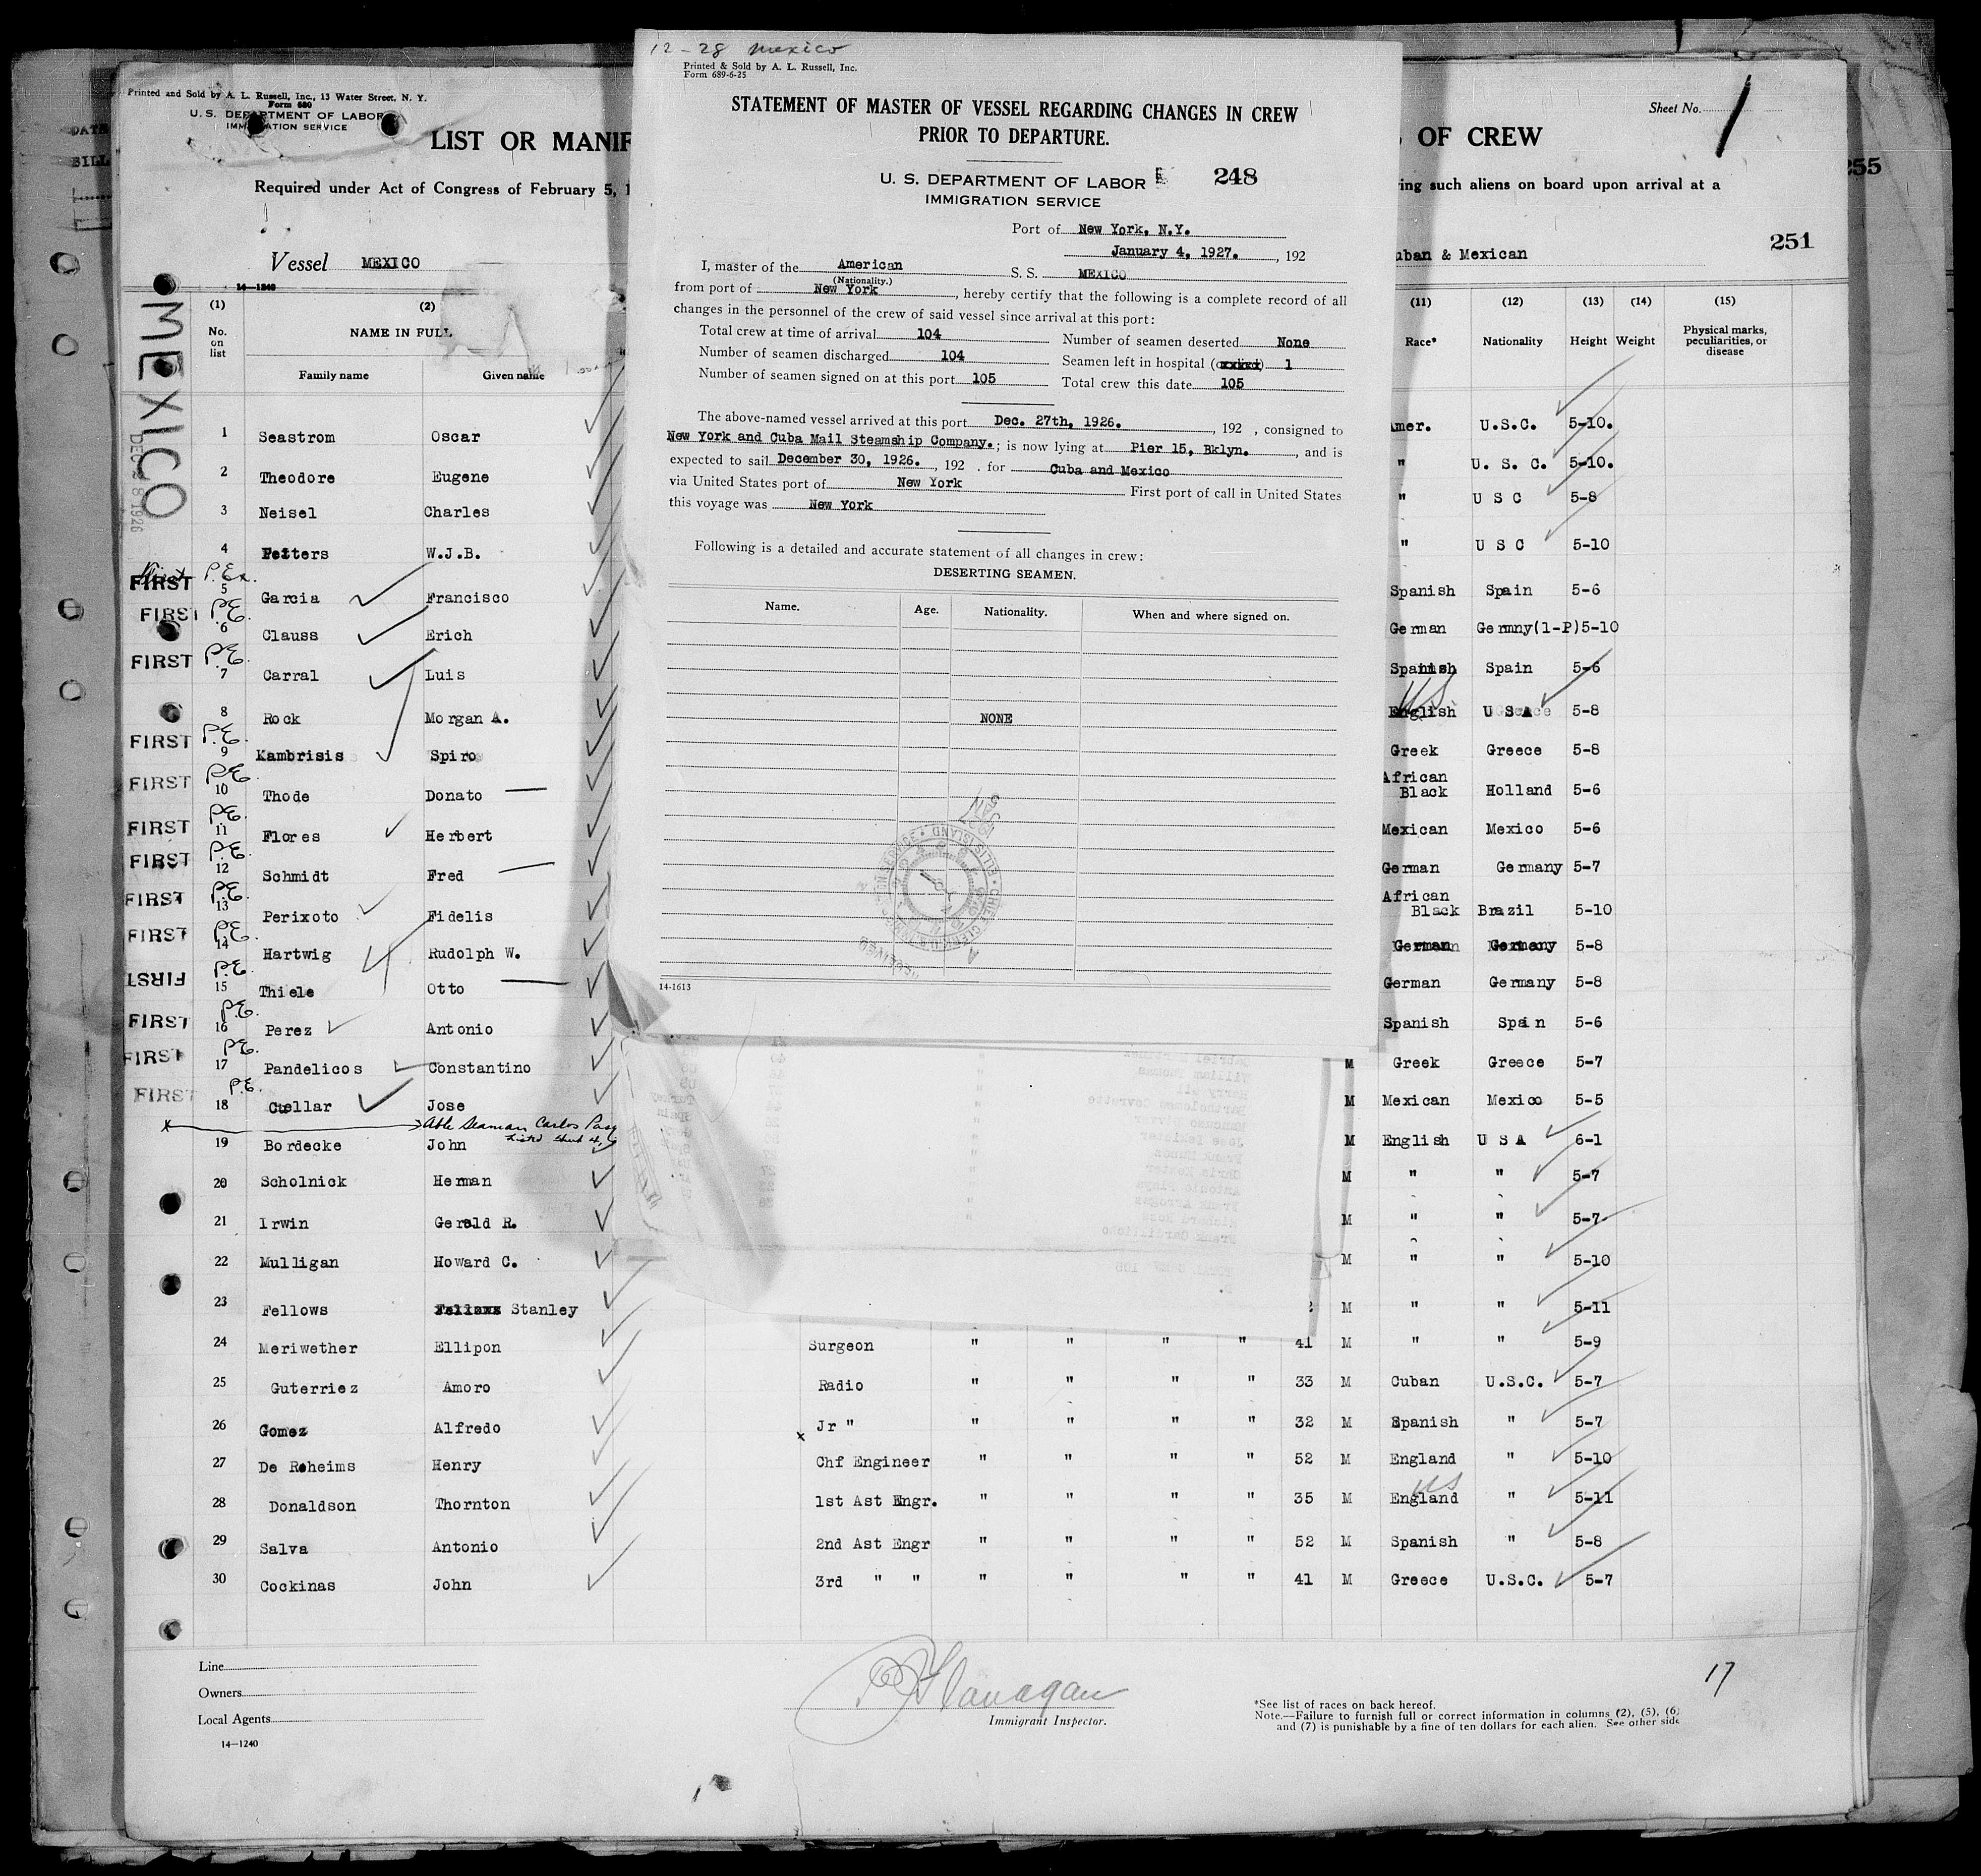 12-28 Mexico
Printed & Sold by A. L. Russell, Inc.
Form 689-6-25
STATEMENT OF MASTER OF VESSEL REGARDING CHANGES IN CREW
PRIOR TO DEPARTURE.
U. S. DEPARTMENT OF LABOR 248
IMMIGRATION SERVICE
Port of New York, N.Y.
January 4, 1927. , 192
I, master of the American S. S. MEXICO
(Nationality.)
from port of New York , hereby certify that the following is a complete record of all
changes in the personnel of the crew of said vessel since arrival at this port:
Total crew at time of arrival 104 Number of seamen deserted None
Number of seamen discharged 104 Seamen left in hospital 1
Number of seamen signed on at this port 105 Total crew this date 105
The above-named vessel arrived at this port Dec. 27th, 1926. , 192 , consigned to
New York and Cuba Mail Steamship Company. ; is now lying at Pier 15, Bklyn. , and is
expected to sail December 30, 1926. , 192 . for Cuba and Mexico
via United States port of New York First port of call in United States
this voyage was New York
Following is a detailed and accurate statement of all changes in crew:
DESERTING SEAMEN.
Name. Age. Nationality. When and where signed on.
NONE
14-1613
Printed and Sold by A. L. Russell, Inc., 13 Water Street, N. Y.
Form 680
U. S. DEPARTMENT OF LABOR
IMMIGRATION SERVICE
Sheet No. 1
LIST OR MANIF OF CREW
255
Required under Act of Congress of February 5, 1 ing such aliens on board upon arrival at a
251
Vessel MEXICO uban & Mexican
14-1240
MEXICO
DEC 28 1926
(1) (2) (11) (12) (13) (14) (15)
No. on list NAME IN FULL Race* Nationality Height Weight Physical marks, peculiarities, or disease
Family name Given name
1 Seastrom Oscar Amer. U.S.C. 5-10.
2 Theodore Eugene " U. S. C. 5-10.
3 Neisel Charles " U S C 5-8
4 W.J.B. " U S C 5-10
FIRST P.Ex. 5 Garcia Francisco Spanish Spain 5-6
FIRST P.E. 6 Clauss Erich German Germny(1-P)5-10
FIRST P.E. 7 Carral Luis Spanish Spain 5-6
8 Rock Morgan A. English US U S A 5-8
FIRST P.E. 9 Kambrisis Spiro Greek Greece 5-8
FIRST P.E. 10 Thode Donato African Black Holland 5-6
FIRST P.E. 11 Flores Herbert Mexican Mexico 5-6
FIRST P.E. 12 Schmidt Fred German Germany 5-7
FIRST P.E. 13 Perixoto Fidelis African Black Brazil 5-10
FIRST P.E. 14 Hartwig Rudolph W. German Germany 5-8
FIRST P.E. 15 Thiele Otto German Germany 5-8
FIRST P.E. 16 Perez Antonio Spanish Spain 5-6
FIRST P.E. 17 Pandelicos Constantino M Greek Greece 5-7
FIRST P.E. 18 Cuellar Jose M Mexican Mexico 5-5
x Able Seaman Carlos
Listed Sheet 4,
19 Bordecke John M English U S A 6-1
20 Scholnick Herman M " " 5-7
21 Irwin Gerald R. M " " 5-7
22 Mulligan Howard C. M " " 5-10
23 Fellows Stanley M " " 5-11
24 Meriwether Ellipon Surgeon " " " " 41 M " " 5-9
25 Guterriez Amoro Radio " " " " 33 M Cuban U.S.C. 5-7
26 Gomez Alfredo x Jr " " " " " 32 M Spanish " 5-7
27 De Roheims Henry Chf Engineer " " " " 52 M England " 5-10
28 Donaldson Thornton 1st Ast Engr. " " " " 35 M England US " 5-11
29 Salva Antonio 2nd Ast Engr " " " " 52 M Spanish " 5-8
30 Cockinas John 3rd " " " " " " 41 M Greece U.S.C. 5-7
Line
Owners
Local Agents
14-1240
Flanagan
Immigrant Inspector.
17
*See list of races on back hereof.
Note.—Failure to furnish full or correct information in columns (2), (5), (6)
and (7) is punishable by a fine of ten dollars for each alien. See other side